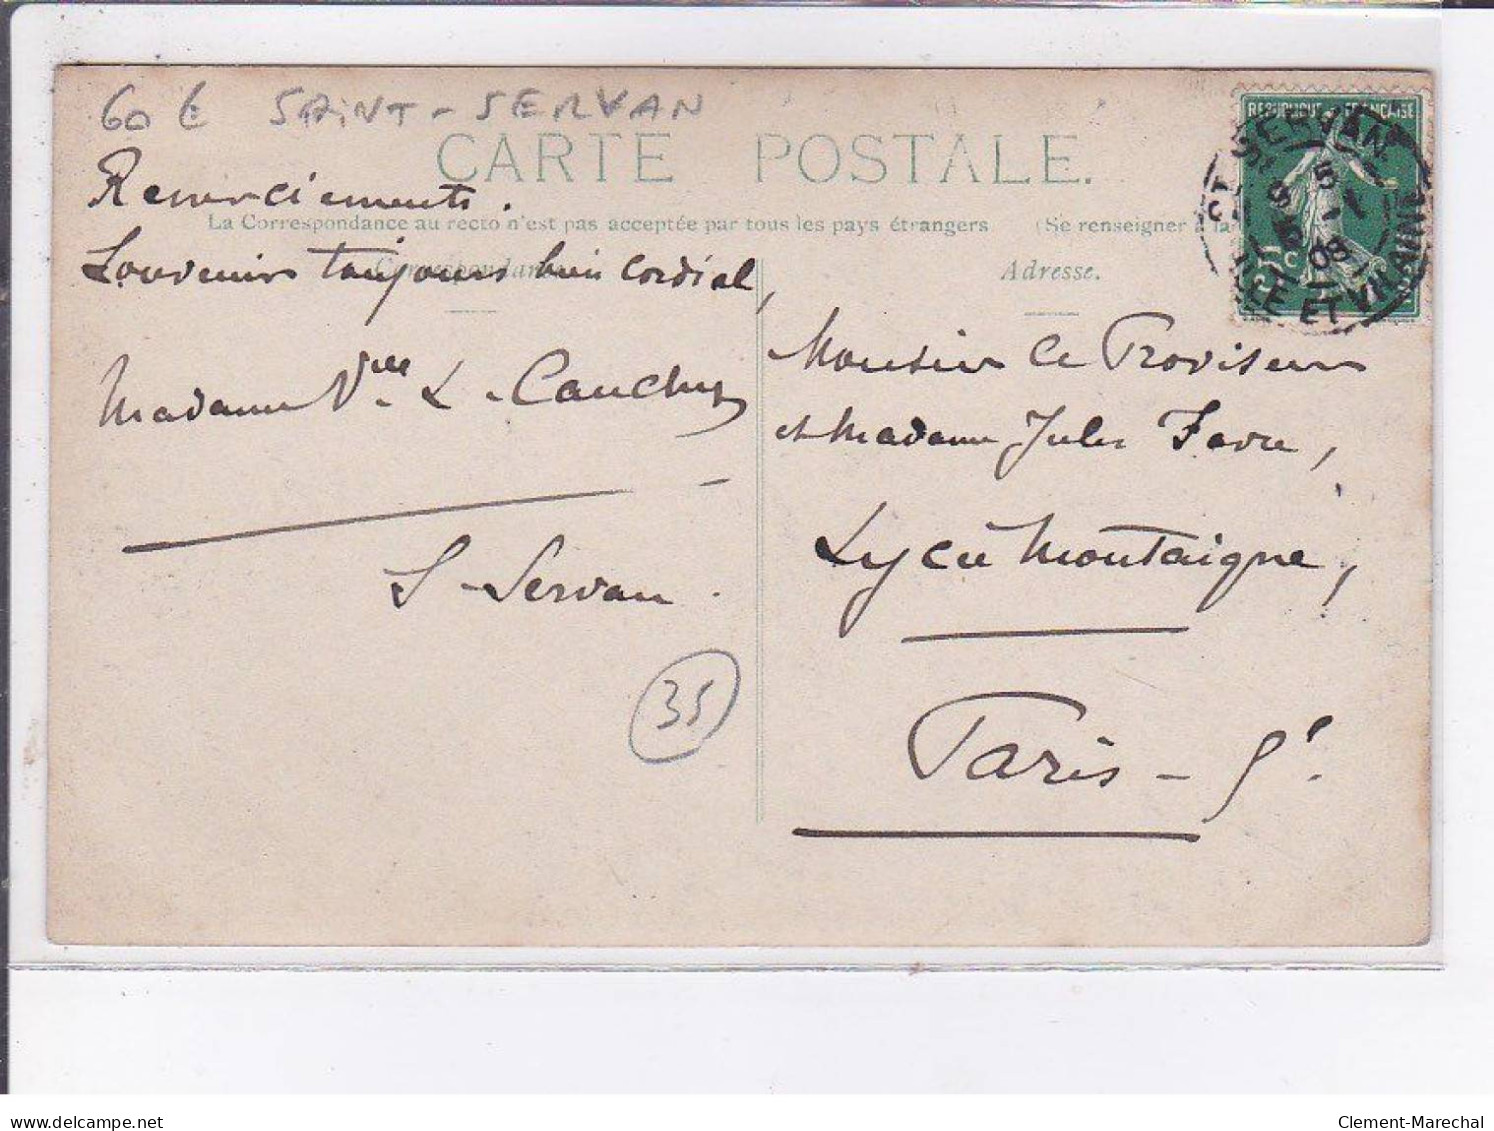 60 € SAINT-SERVAN
CARTE POSTALE.
Remerciements.
La Correspondance au recto n'est pas acceptée par tous les pays étrangers (Se renseigner à la
Souvenirs toujours bien cordial,
Correspondance
Adresse.
REPUBLIQUE FRANÇAISE
SERVAN
5 - 1
08
ILLE ET VILAINE
5 c
Madame Vve L. Cauchy
S-Servan.
35
Monsieur le Proviseur
et Madame Jules Favre,
Lycée Montaigne,
Paris - 5e.
delcampe.net
Clement-Marechal